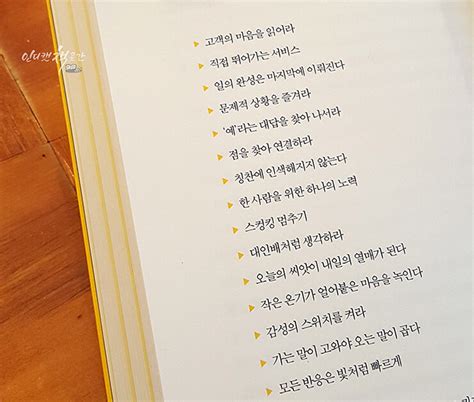 ▶ 고객의 마음을 읽어라
▶ 직접 뛰어가는 서비스
▶ 일의 완성은 마지막에 이뤄진다
▶ 문제적 상황을 즐겨라
▶ '예'라는 대답을 찾아 나서라
▶ 점을 찾아 연결하라
▶ 칭찬에 인색해지지 않는다
▶ 한 사람을 위한 하나의 노력
▶ 스컹킹 멈추기
▶ 대인배처럼 생각하라
▶ 오늘의 씨앗이 내일의 열매가 된다
▶ 작은 온기가 얼어붙은 마음을 녹인다
▶ 감성의 스위치를 켜라
▶ 가는 말이 고와야 오는 말이 곱다
▶ 모든 반응은 빛처럼 빠르게